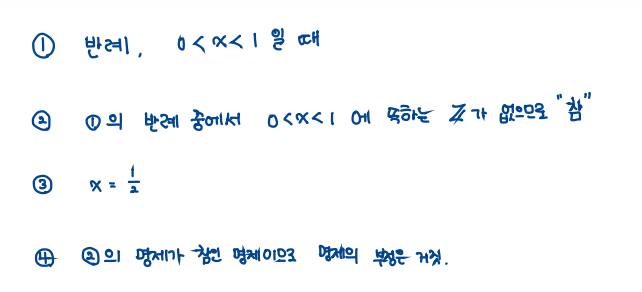 ① 반례, 0 < x < 1 일 때
② ①의 반례 중에서 0 < x < 1 에 속하는 ℤ가 없으므로 "참"
③ x = 1/2
④ ②의 명제가 참인 명제이므로 명제의 부정은 거짓.